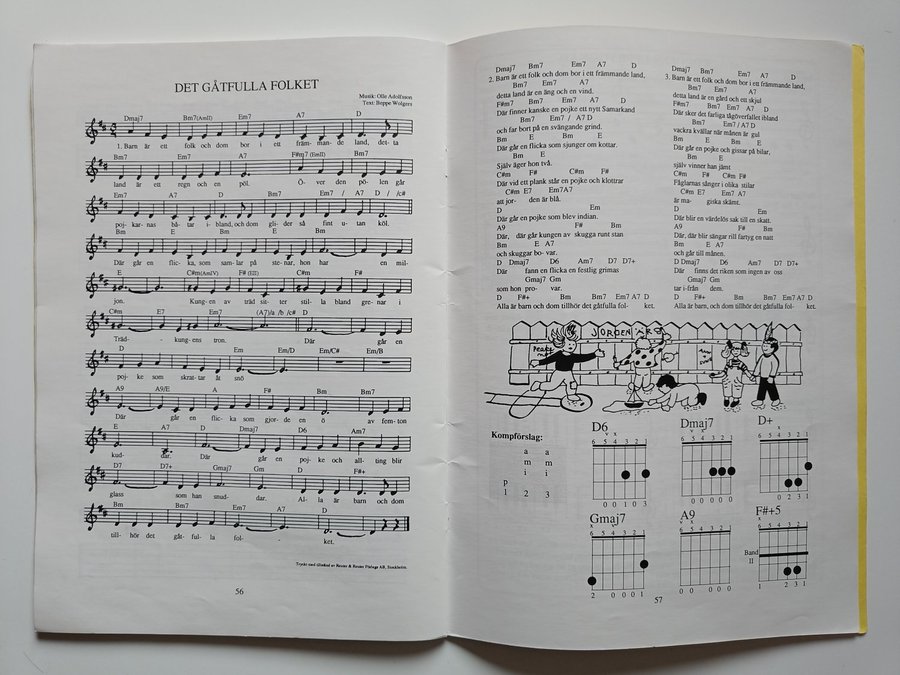 DET GÅTFULLA FOLKET
Musik: Olle Adolfsson
Text: Beppe Wolgers
Dmaj7 Bm7(AmII) Em7 A7 D
1. Barn är ett folk och dom bor i ett främ- man- de land, det- ta
Bm7 Em7 A7 F#m7 (EmII) Bm7
land är ett regn och en pöl. Ö- ver den pö- len går
Em7 A7 D Bm7 Em7 / A7 D / /c#
poj- kar- nas bå- tar i- bland, och dom gli- der så fint u- tan köl.
Bm E Bm E Bm
Där går en flic- ka, som sam- lar på ste- nar, hon har en mil-
E C#m(AmIV) F# (EII) C#m F#
jon. Kung- en av träd sit- ter stil- la bland gre- nar i
C#m E7 Em7 (A7)/a /b /c# D
Träd- kung- ens tron. Där går en
D Em Em/D Em/C# Em/B
poj- ke som skrat- tar åt snö
A9 A9/E A F# Bm Bm7
Där går en flic- ka som gjor- de en ö av fem- ton
Em7 A D Dmaj7 D6 Am7
kud- dar. Där går en poj- ke och all- ting blir
D7 D7+ Gmaj7 Gm D F#+
glass som han snud- dar. Al- la är barn och dom
Bm Bm7 Em7 A7 D
till- hör det gåt- ful- la fol- ket.
Tryckt med tillstånd av Reuter & Reuter Förlags AB, Stockholm.
56
Dmaj7 Bm7 Em7 A7 D
2. Barn är ett folk och dom bor i ett främmande land,
Bm7 Em7 A7
detta land är en äng och en vind.
F#m7 Bm7 Em7 A7 D
Där finner kanske en pojke ett nytt Samarkand
Bm7 Em7 / A7 D
och far bort på en svängande grind.
Bm E Bm E
Där går en flicka som sjunger om kottar.
Bm E
Själv äger hon två.
C#m F# C#m F#
Där vid ett plank står en pojke och klottrar
C#m E7 Em7A7
att jor- den är blå.
D Em
Där går en pojke som blev indian.
A9 F# Bm
Där, där går kungen av skugga runt stan
Bm E A7
och skuggar bo- var.
D Dmaj7 D6 Am7 D7 D7+
Där fann en flicka en festlig grimas
Gmaj7 Gm
som hon pro- var.
D F#+ Bm Bm7 Em7 A7 D
Alla är barn och dom tillhör det gåtfulla fol- ket.
Dmaj7 Bm7 Em7 A7 D
3. Barn är ett folk och dom bor i ett främmande land,
Bm7 Em7 A7
detta land är en gård och ett skjul
F#m7 Bm7 Em7 A7 D
Där sker det farliga tågöverfallet ibland
Bm7 Em7 / A7 D
vackra kvällar när månen är gul
Bm E Bm
Där går en pojke och gissar på bilar,
Bm E
själv vinner han jämt.
C#m F# C#m F#
Fåglarnas sånger i olika stilar
C#m E7 Em7 A7
är ma- giska skämt.
D Em
Där blir en värdelös sak till en skatt.
A9 F# Bm
Där, där blir sängar rill fartyg en natt
Bm E A7
och går till månen.
D Dmaj7 D6 Am7 D7 D7+
Där finns det riken som ingen av oss
Gmaj7 Gm
tar i-från dem.
D F#+ Bm Bm7 Em7 A7 D
Alla är barn, och dom tillhör det gåtfulla fol- ket.
JORDEN ÄR
Kompförslag:
a a
m m
i i
p
1 2 3
D6
v x
6 5 4 3 2 1
0 1 0 3
Dmaj7
v x
6 5 4 3 2 1
0 0 0 0 0
D+
x
6 5 4 3 2 1
0 2 3 1
Gmaj7
x v
6 5 4 3 2 1
2 0 0 0 1
A9
v x
6 5 4 3 2 1
0 0 0 0 0
F#+5
x
6 5 4 3 2 1
Band
II
1 2 3 1
57